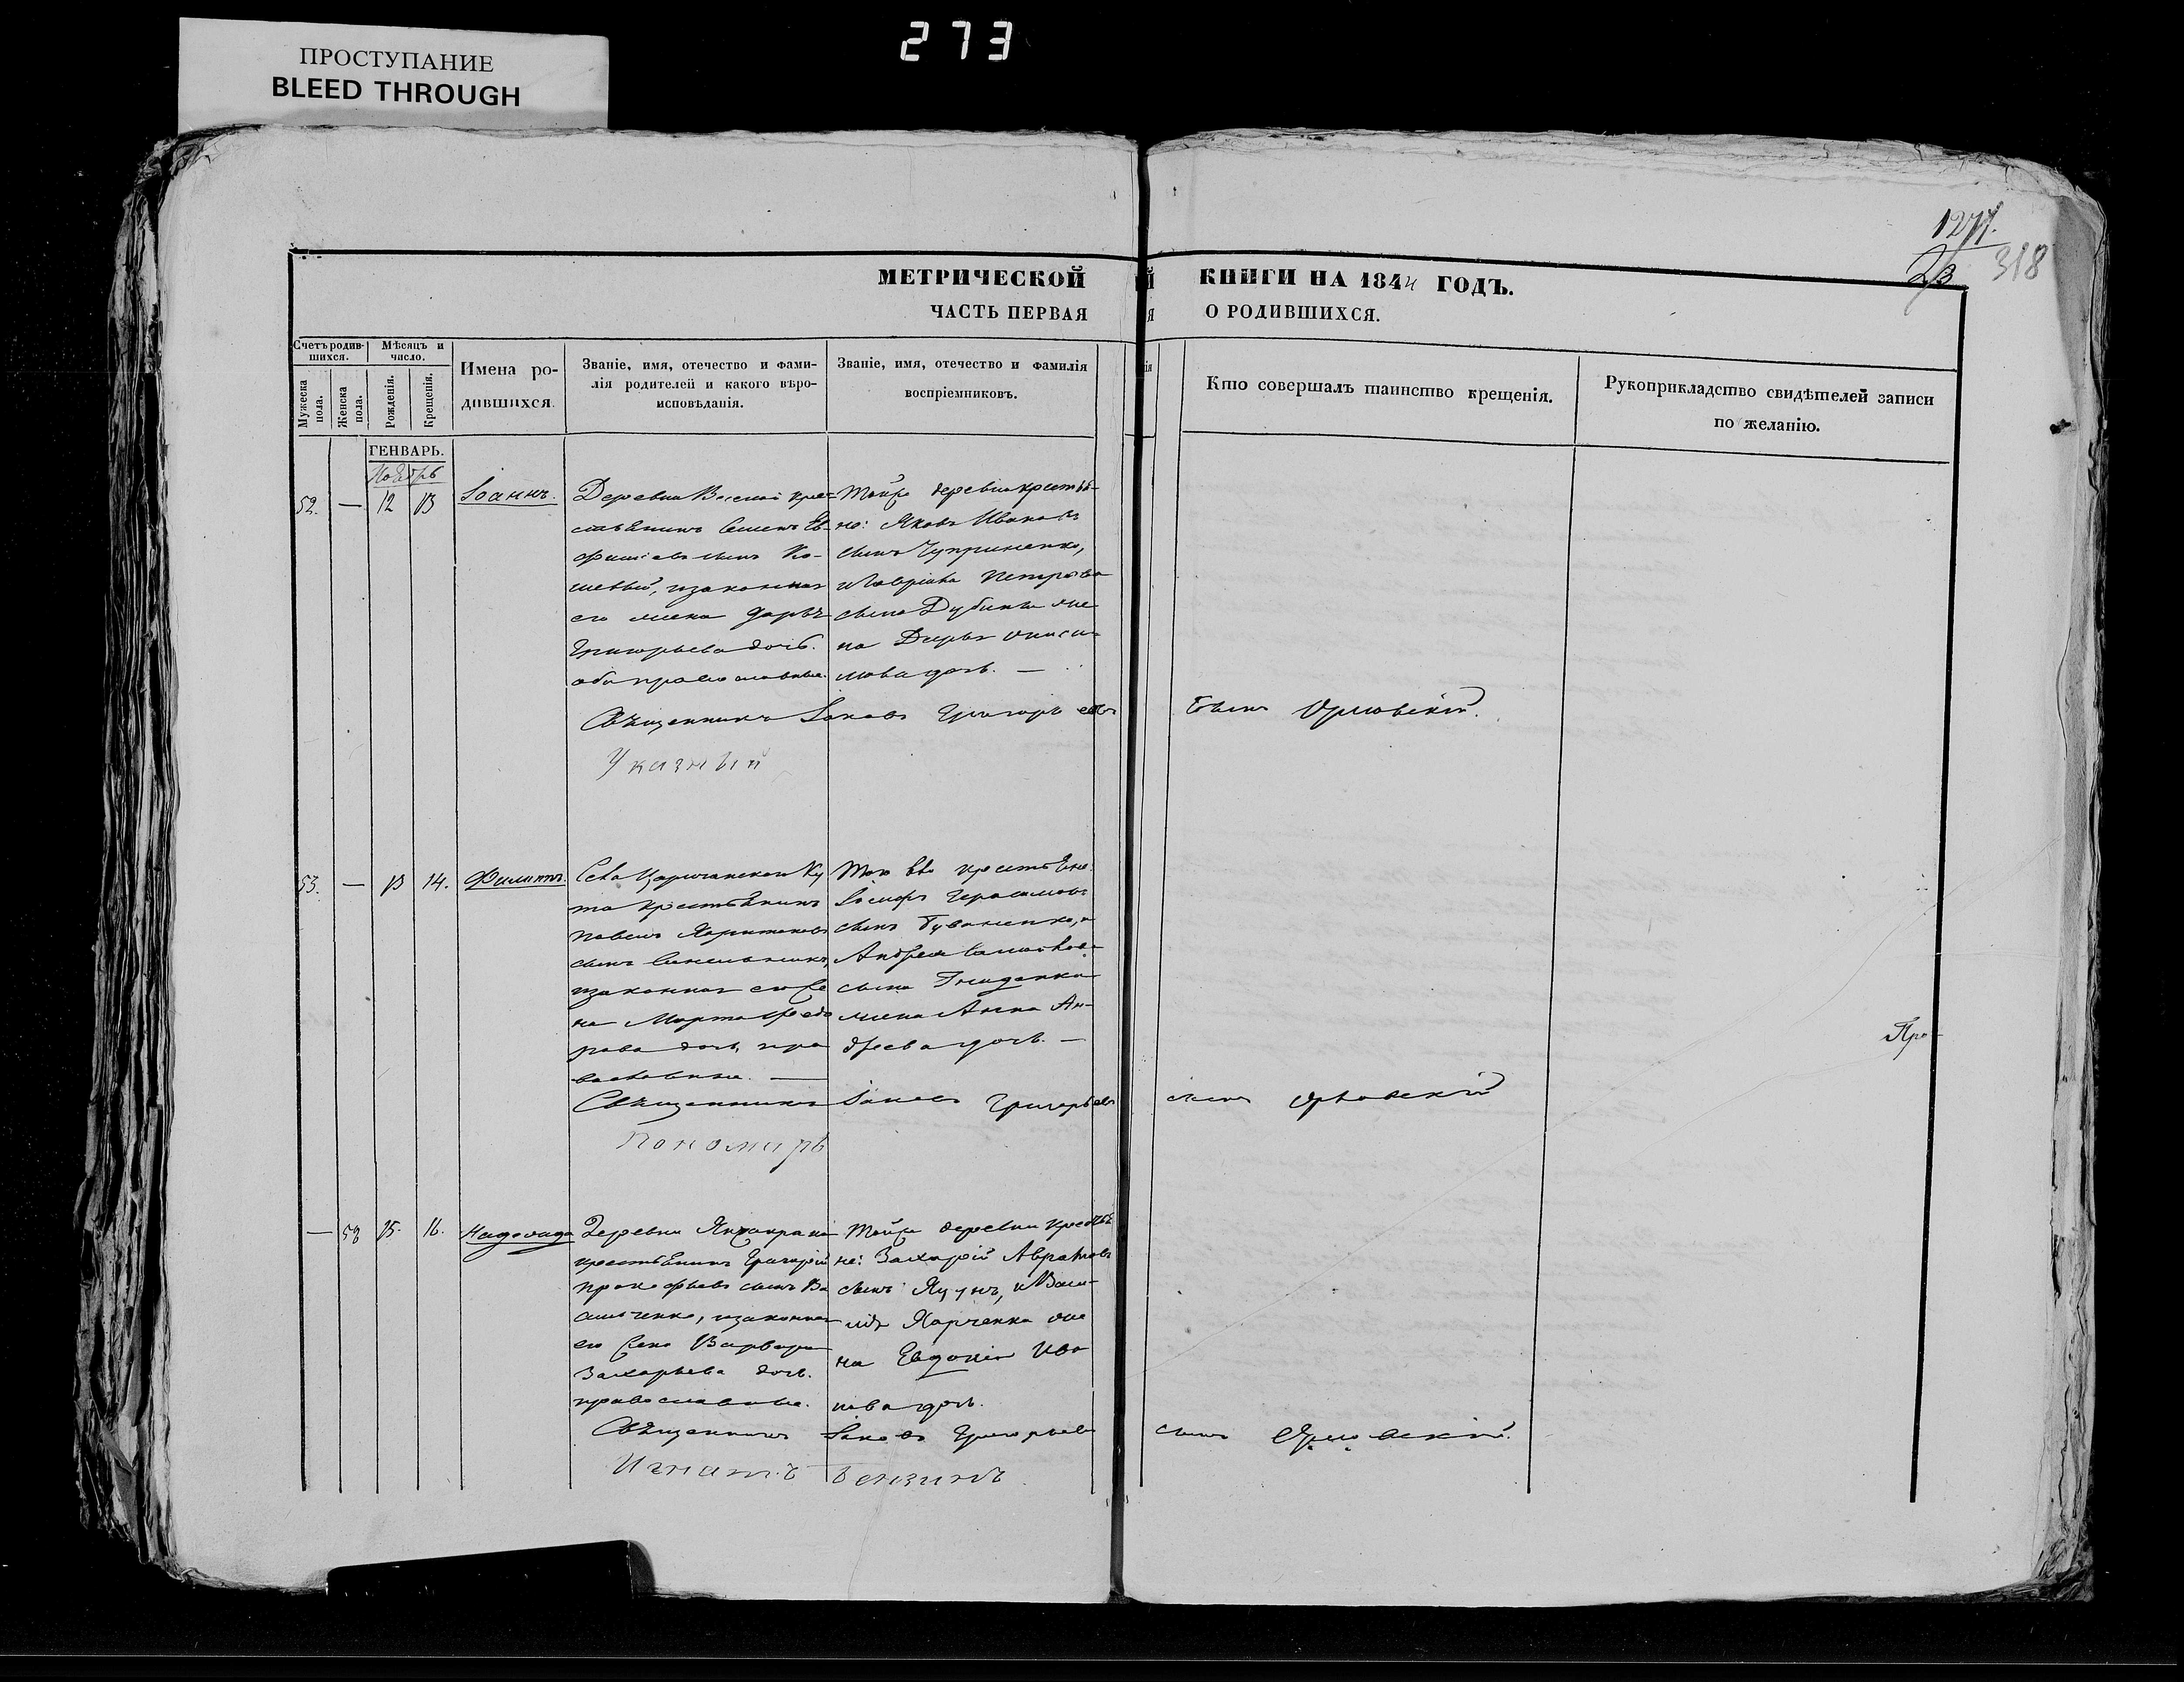 ПРОСТУПАНИЕ
BLEED THROUGH
273
318
МЕТРИЧЕСКОЙ КНИГИ НА 1844 ГОДЪ.
ЧАСТЬ ПЕРВАЯ О РОДИВШИХСЯ.
Счетъ родив-
шихся.
Мужеска
пола.
Женска
пола.
Мѣсяцъ и
число.
Рожденія.
Крещенія.
Имена ро-
дившихся.
Званіе, имя, отечество и фами-
лія родителей и какого вѣро-
исповѣданія.
Званіе, имя, отечество и фамилія
воспріемниковъ.
Кто совершалъ таинство крещенія.
Рукоприкладство свидѣтелей записи
по желанію.
ГЕНВАРЬ.
Ноябрь
52. — 12 13 Іоаннъ.
Деревни Веселой крес-
Семенъ Ев-
сынъ Ко-
шевый, изаконная
его жена Дарья
Григорьева дочь.
оба православные.
Тойже деревни крестья-
не: Яковъ Ивановъ
сынъ Чуприненко,
Петрова
сына Дубины же
на ДарьяОниси-
мова дочь. —
Священникъ Іаковъ Григорьевъ сынъ Орловскій.
Указный
53. — 13 14. Филиппъ.
Села Царичанскаго Ку
та крестьянинъ
Павелъ Харитоновъ
сынъ Синельникъ,
изаконная его же
на Марта Федо
рова дочь, пра
вославные. —
Того же крестьяне
Іосифъ Герасимовъ
сынъ
Андрея
сына Гнеденка
жена Анна Ан-
дреева дочь. —
Священникъ Іаковъ Григорьевъ сынъ Орловскій
Пономарь
Про-
— 53 15. 16. Надежда
Деревни
крестьянинъ Григорій
Прокофьевъ сынъ Ва
сильченко, изаконная
его жена Варвара
Захарьева дочь.
православные.
Тойже деревни крестья
не: Захарій Аврамовъ
сынъ Яцунъ, и Васи-
лія Харченка же
на Евдокія Ива
нова дочь.
Священникъ Іаковъ Григорьевъ сынъ Орловскій.
Игнатъ Бензинъ